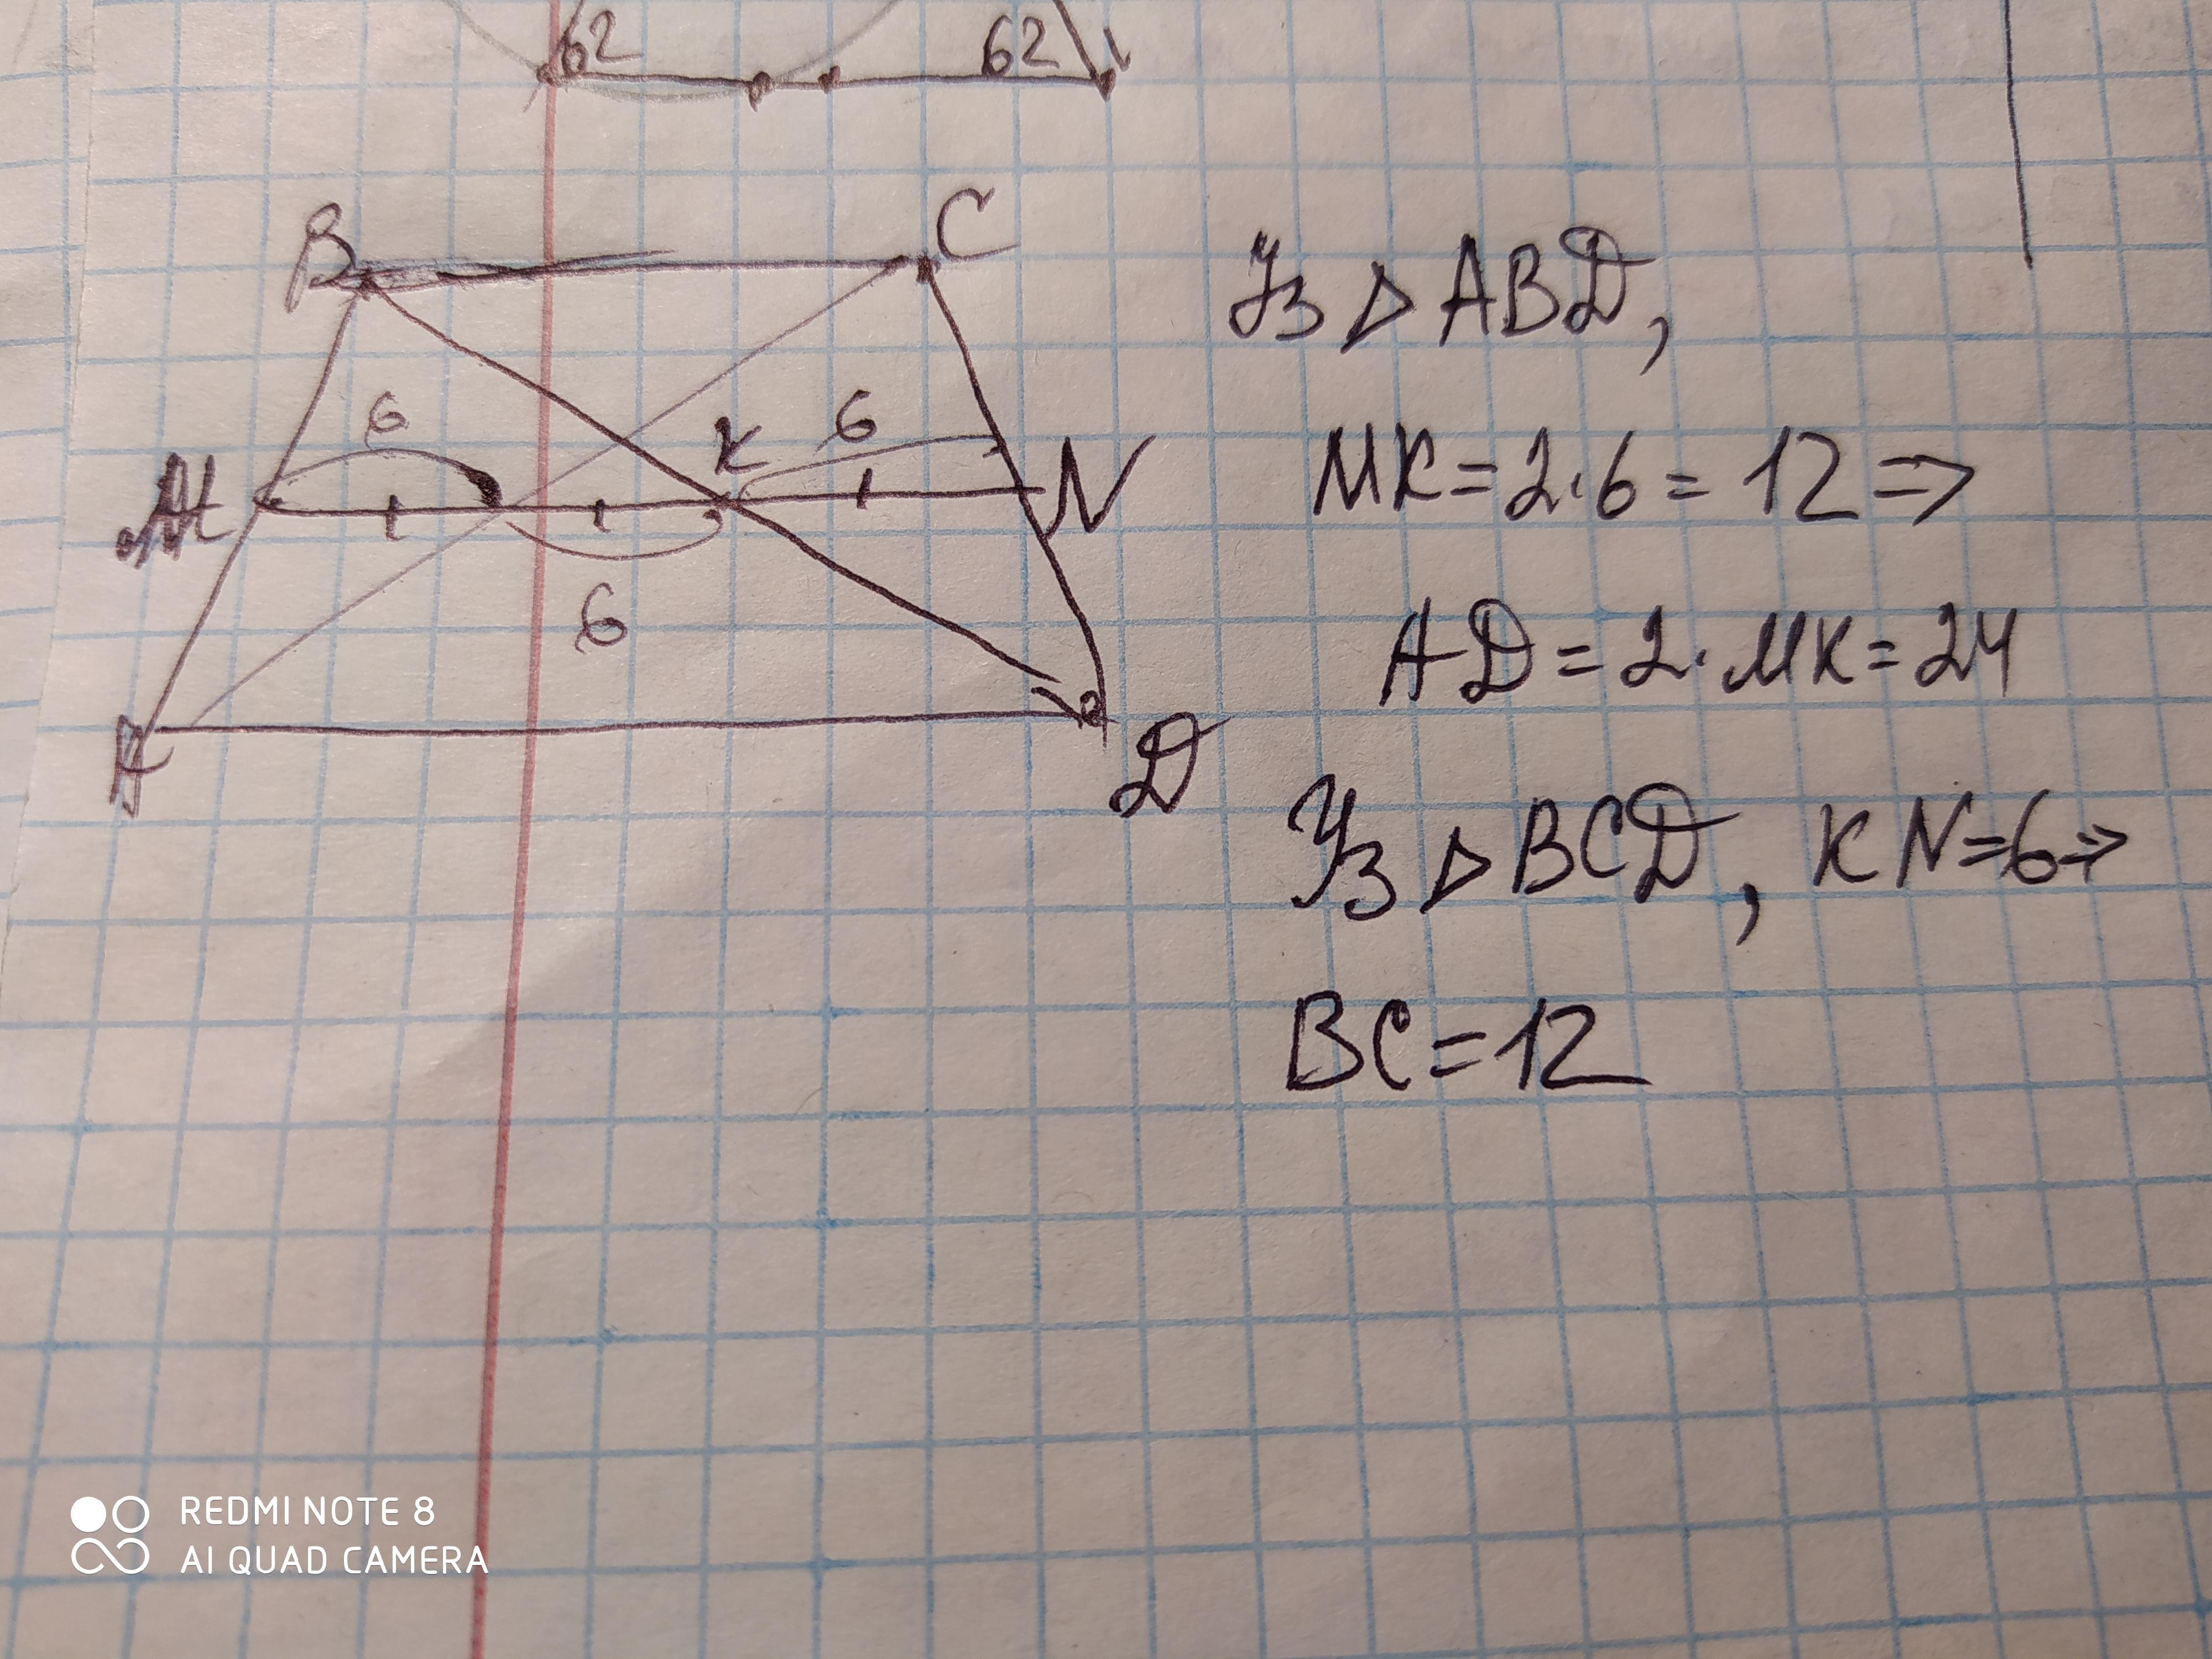 62 62
B C
6 K 6
M N
6
A D
Уз △ ABD,
MK = 2·6 = 12 =>
AD = 2·MK = 24
Уз △ BCD, KN=6=>
BC=12
REDMI NOTE 8
AI QUAD CAMERA